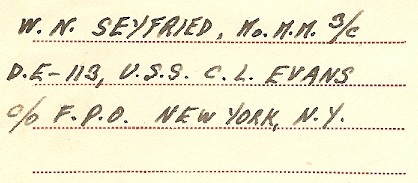 W. N. SEYFRIED, Mo.M.M. 3/c
D.E-113, U.S.S. C.L. EVANS
c/o F.P.O. NEW YORK, N.Y.